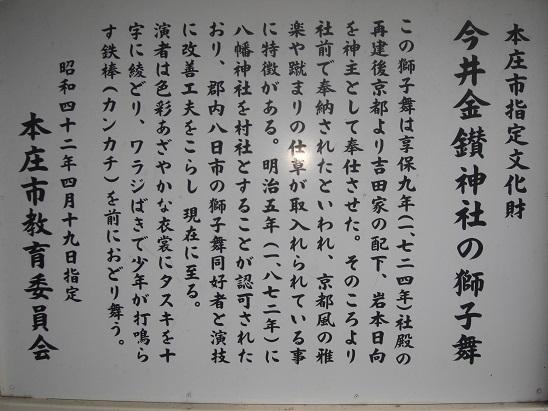 本庄市指定文化財
今井金鑚神社の獅子舞
この獅子舞は享保九年(一、七二四年)社殿の
再建後京都より吉田家の配下、岩本日向
を神主として奉仕させた。そのころより
社前で奉納されたといわれ、京都風の雅
楽や蹴まりの仕草が取入れられている事
に特徴がある。明治五年(一、八七二年)に
八幡神社を村社とすることが認可された
おり、郡内八日市の獅子舞同好者と演技
に改善工夫をこらし現在に至る。
演者は色彩あざやかな衣裳にタスキを十
字に綾どり、ワラジばきで少年が打鳴ら
す鉄棒(カンカチ)を前におどり舞う。
昭和四十二年四月十九日指定
本庄市教育委員会